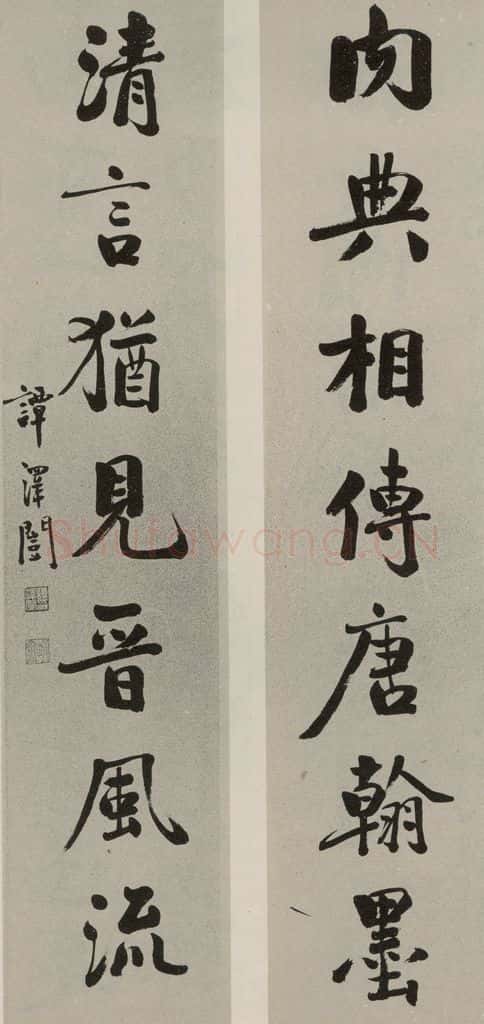 内典相傳唐翰墨
清言猶見晉風流
譚澤闓
Shufawang.CN